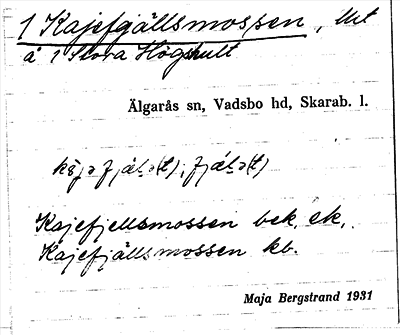 1 Kajefjällsmossen, Ut
å 1 Stora Högshult
Älgarås sn, Vadsbo hd, Skarab. l.
Kajefjellsmossen bek. ek.
Kajefjällsmossen kb.
Maja Bergstrand 1931